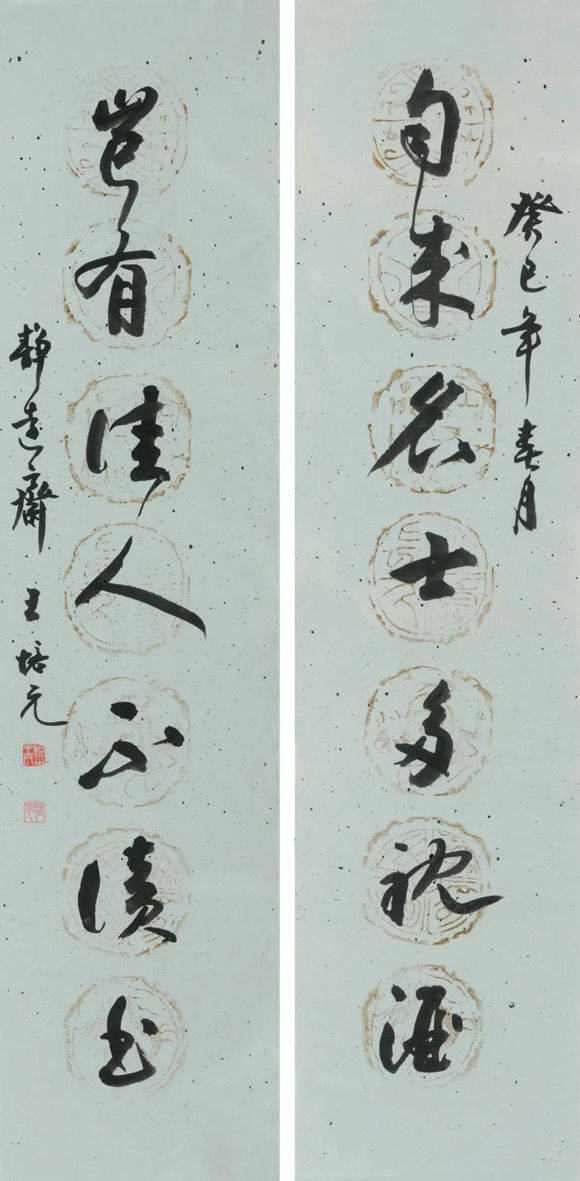 癸巳年春月
自来名士多耽酒
豈有佳人不讀書
静遠齋 王培元